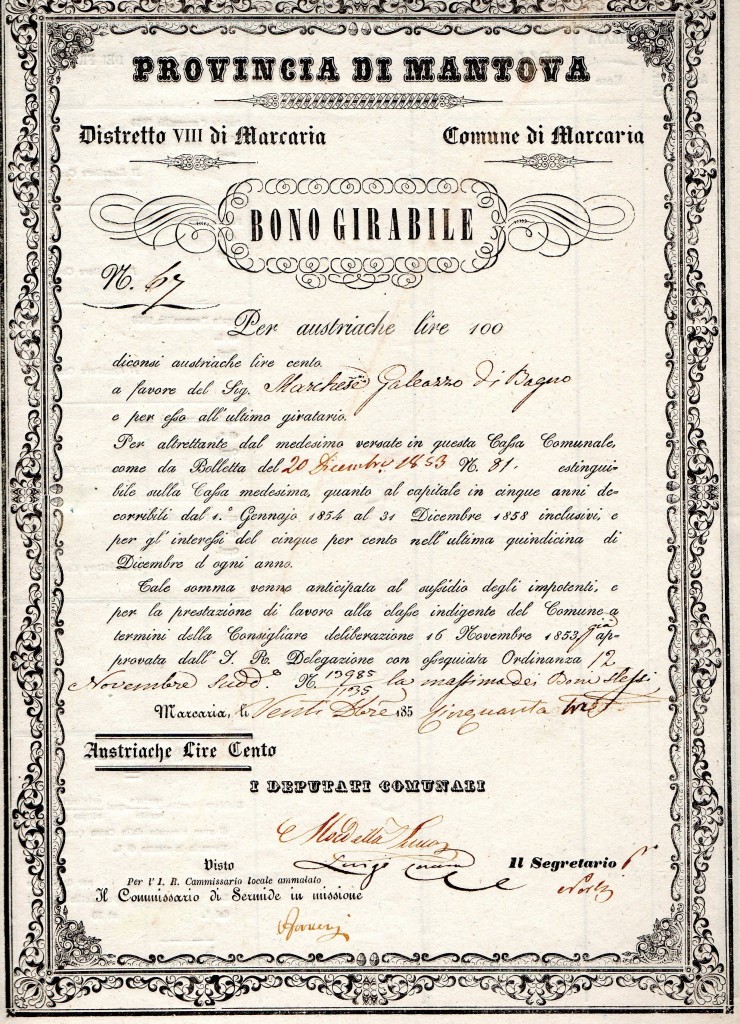 PROVINCIA DI MANTOVA
Distretto VIII di Marcaria
Comune di Marcaria
BONO GIRABILE
N. 67
Per austriache lire 100
diconsi austriache lire cento
a favore del Sig. Marchese Galeazzo di Bagno
e per esso all'ultimo giratario.
Per altrettante dal medesimo versate in questa Cassa Comunale,
come da Bolletta del 20 Dicembre 1853 N. 81. estingui-
bile sulla Cassa medesima, quanto al capitale in cinque anni de-
corribili dal 1.º Gennajo 1854 al 31 Dicembre 1858 inclusivi, e
per gl'interessi del cinque per cento nell'ultima quindicina di
Dicembre d ogni anno.
Tale somma venne anticipata al sussidio degli impotenti, e
per la prestazione di lavoro alla classe indigente del Comune a
termini della Consigliare deliberazione 16 Novembre 1853, già ap-
provata dall'I. R. Delegazione con ossequiata Ordinanza 12
Novembre sudd.º N. 19985/1135 la massima dei Boni stessi
Marcaria, li Venti Dbre 185 Cinquanta tre
Austriache Lire Cento
I DEPUTATI COMUNALI
Luigi
Visto
Per l'I. R. Cammissario locale ammalato
Il Commissario di Sermide in missione
Il Segretario